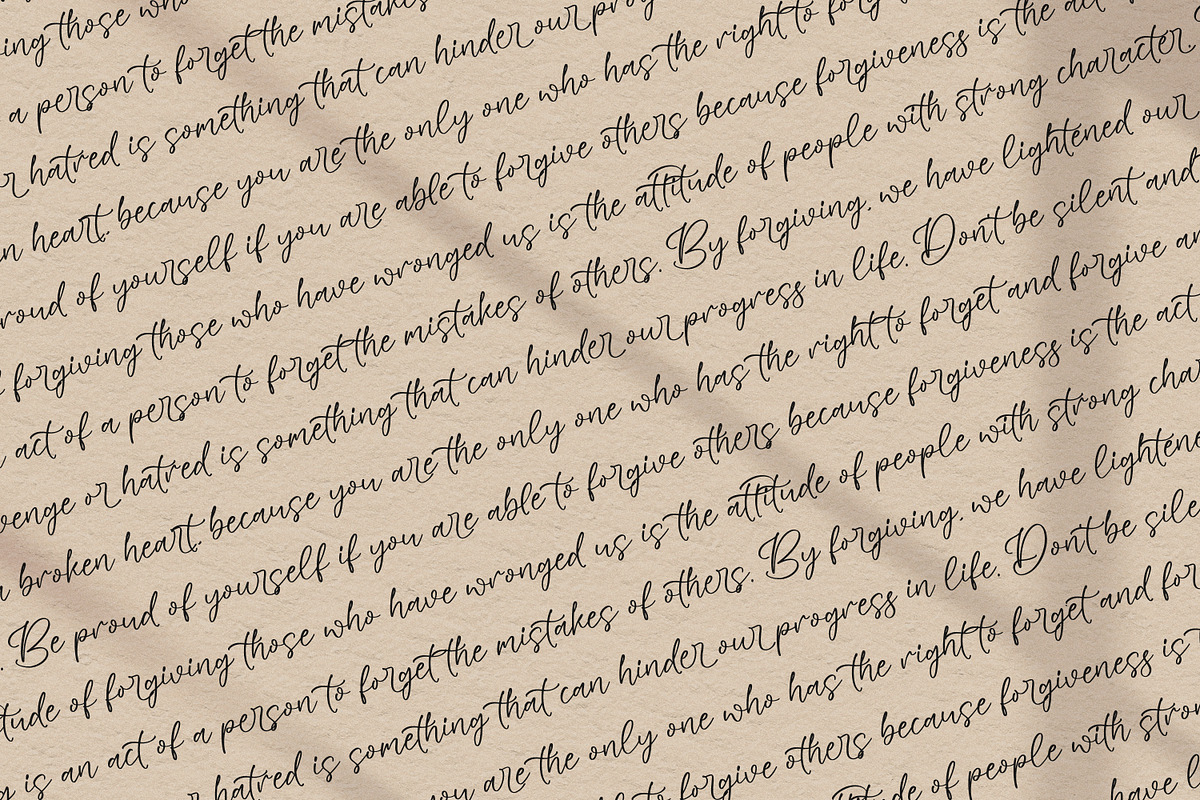 ing those who
a person to forget the mistakes
r hatred is something that can hinder our prog
n heart, because you are the only one who has the right to forg
roud of yourself if you are able to forgive others because forgiveness is the act
forgiving those who have wronged us is the attitude of people with strong character.
act of a person to forget the mistakes of others. By forgiving, we have lightened our
venge or hatred is something that can hinder our progress in life. Don't be silent and
broken heart, because you are the only one who has the right to forget and forgive an
. Be proud of yourself if you are able to forgive others because forgiveness is the act
tude of forgiving those who have wronged us is the attitude of people with strong char
g is an act of a person to forget the mistakes of others. By forgiving, we have lightene
hatred is something that can hinder our progress in life. Don't be sile
you are the only one who has the right to forget and for
forgive others because forgiveness is t
tude of people with stron
have l